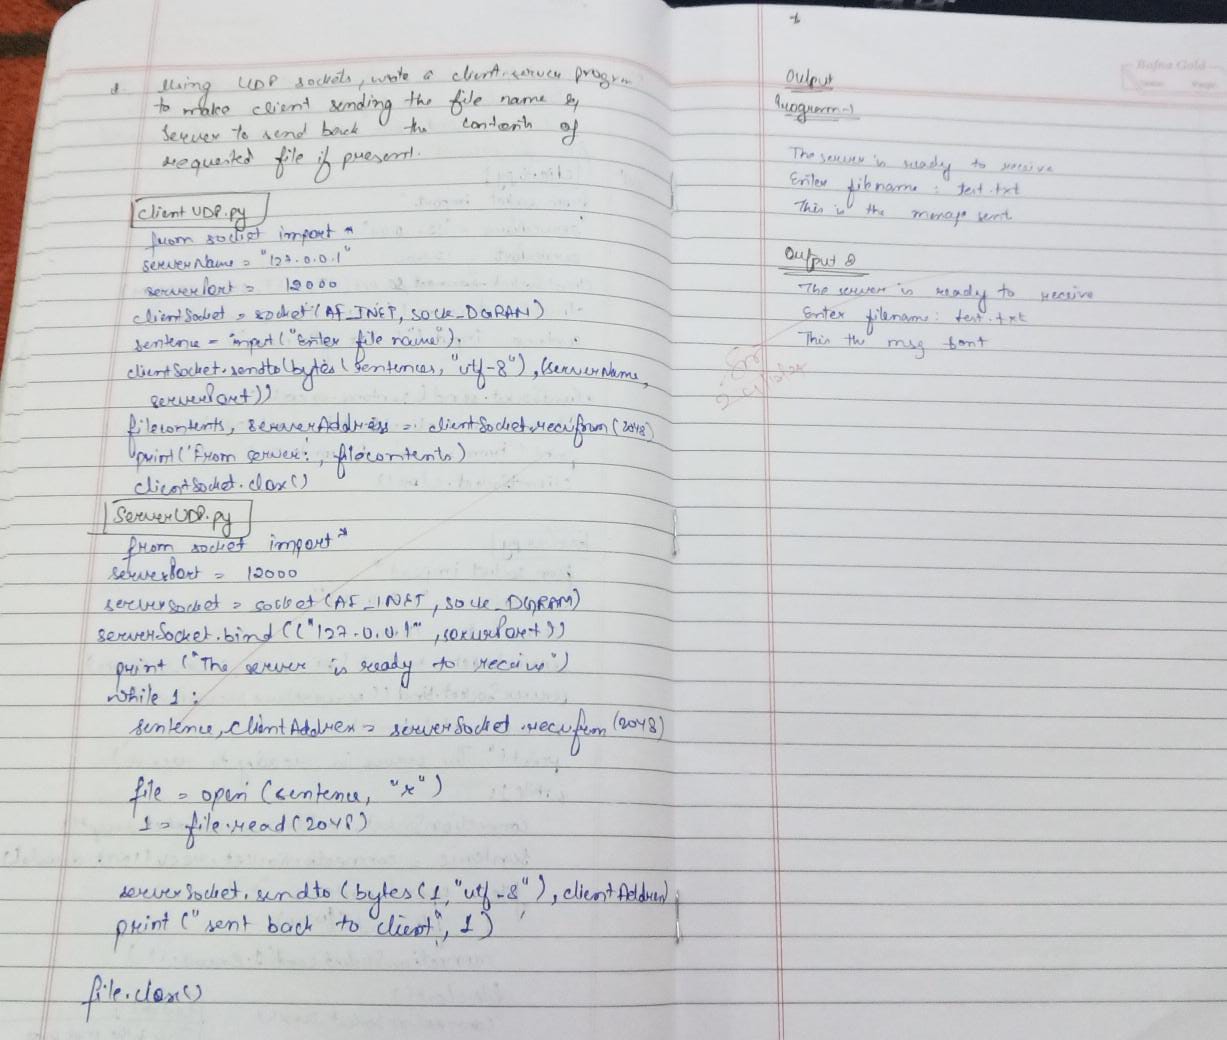 Using UDP sockets, write a client-server program
to make client sending the file name &
server to send back the contents of
requested file if present.
Client UDP.py
from socket import *
serverName = "127.0.0.1"
serverPort = 12000
clientSocket = socket(AF_INET, SOCK_DGRAM)
sentence = input("Enter file name").
clientSocket.sendto(bytes(sentences, "utf-8"), (serverName,
serverPort))
filecontents, serverAddress = clientSocket.recvfrom(2048)
print('From server:', filecontents)
clientSocket.close()
ServerUDP.py
from socket import *
serverPort = 12000
serverSocket = socket(AF_INET, SOCK_DGRAM)
serverSocket.bind(("127.0.0.1", serverPort))
print ("The server is ready to receive")
while 1:
sentence, clientAddress = serverSocket.recvfrom(2048)
file = open(sentence, "r")
1 = file.read(2048)
serverSocket.sendto(bytes(1, "utf-8"), clientAddress)
print ("sent back to client", 1)
file.close()
Output
Program-1
The server is ready to receive
Enter filename: test.txt
This is the message sent
Output 2
The server is ready to receive
Enter filename: test.txt
This the msg sent
Bafna Gold